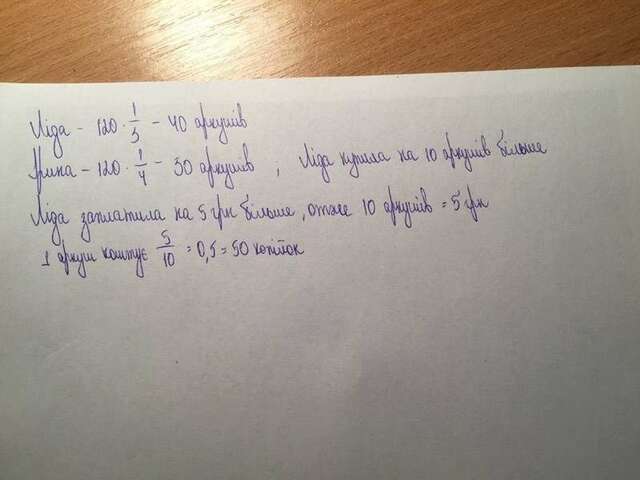 Ліда - 120 · 1/3 - 40 аркушів
Ярина - 120 · 1/4 - 30 аркушів ; Ліда купила на 10 аркушів більше
Ліда заплатила на 5 грн більше, отже 10 аркушів = 5 грн
1 аркуш коштує 5/10 = 0,5 = 50 копійок